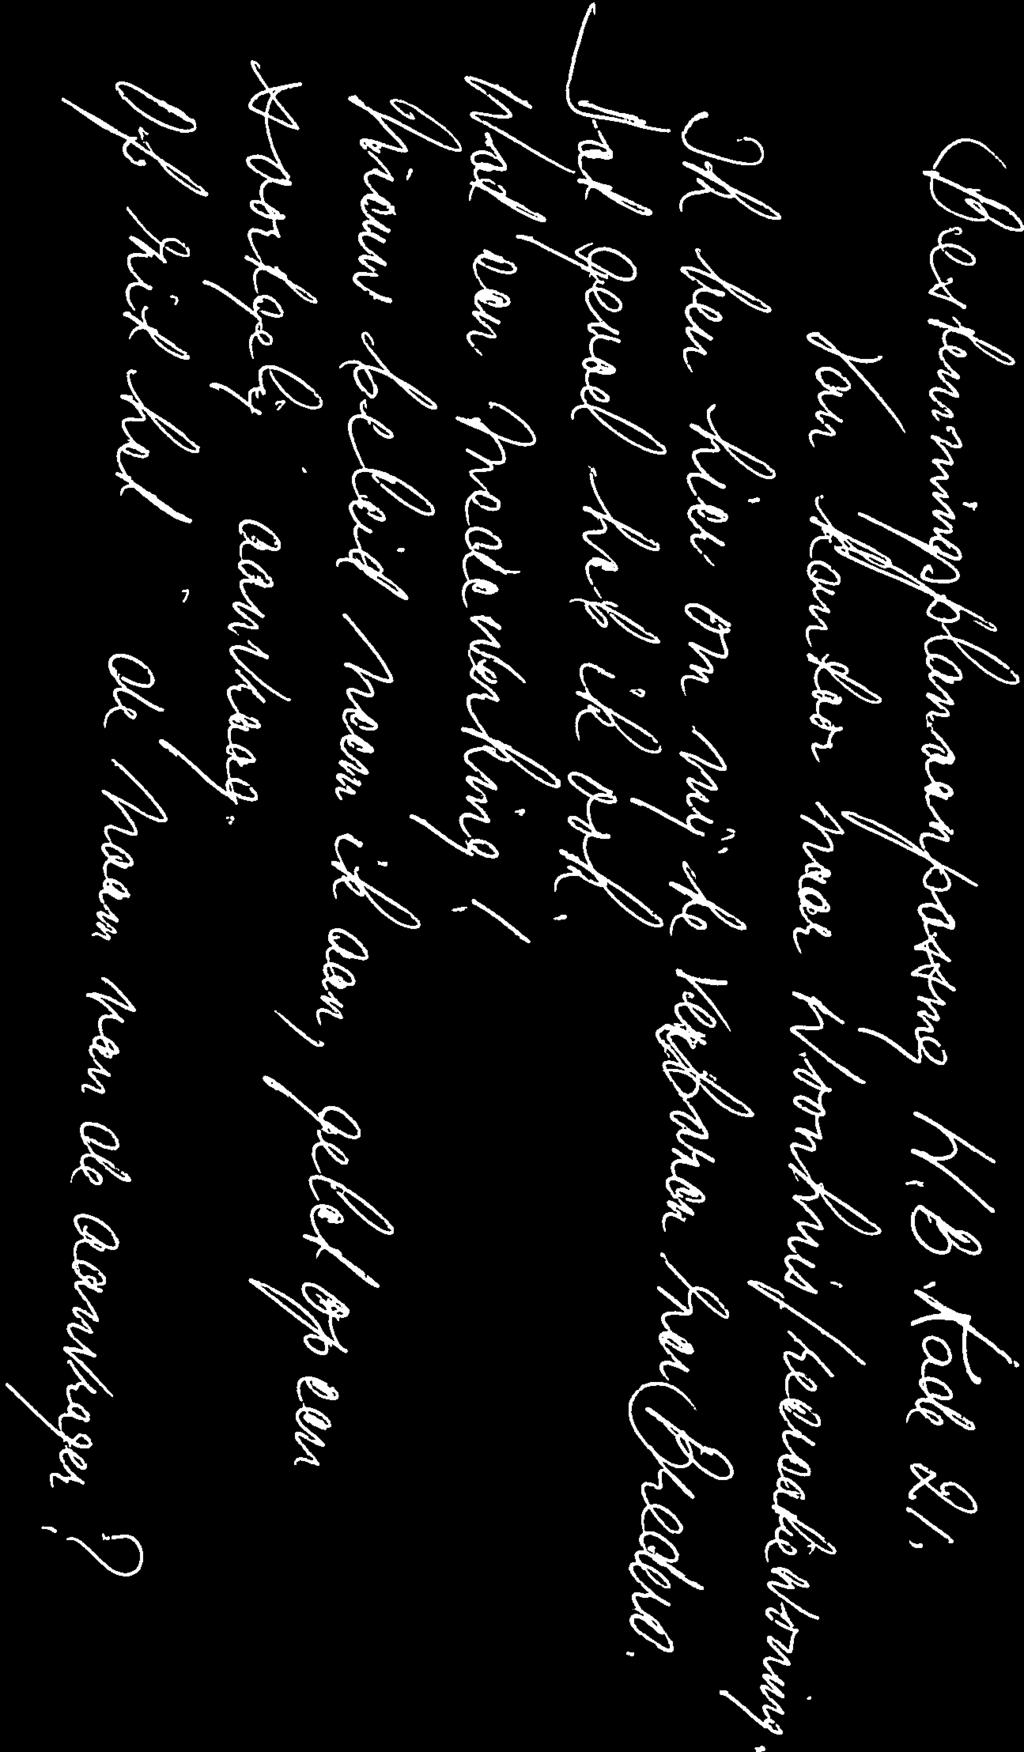 Bestemmingsplanaanpassing W.B. Kade 21.
Van Kantoor naar Woonhuis/recreatiewoning.
Ik ben hier om mij te verbazen hou Bredero.
Dat gevoel heb ik ook.
Wat een medewerking!
Nieuw beleid neem ik aan, gelet op een
soortgelij. aanvraag.
Of zit het de naam van de aanvrager?